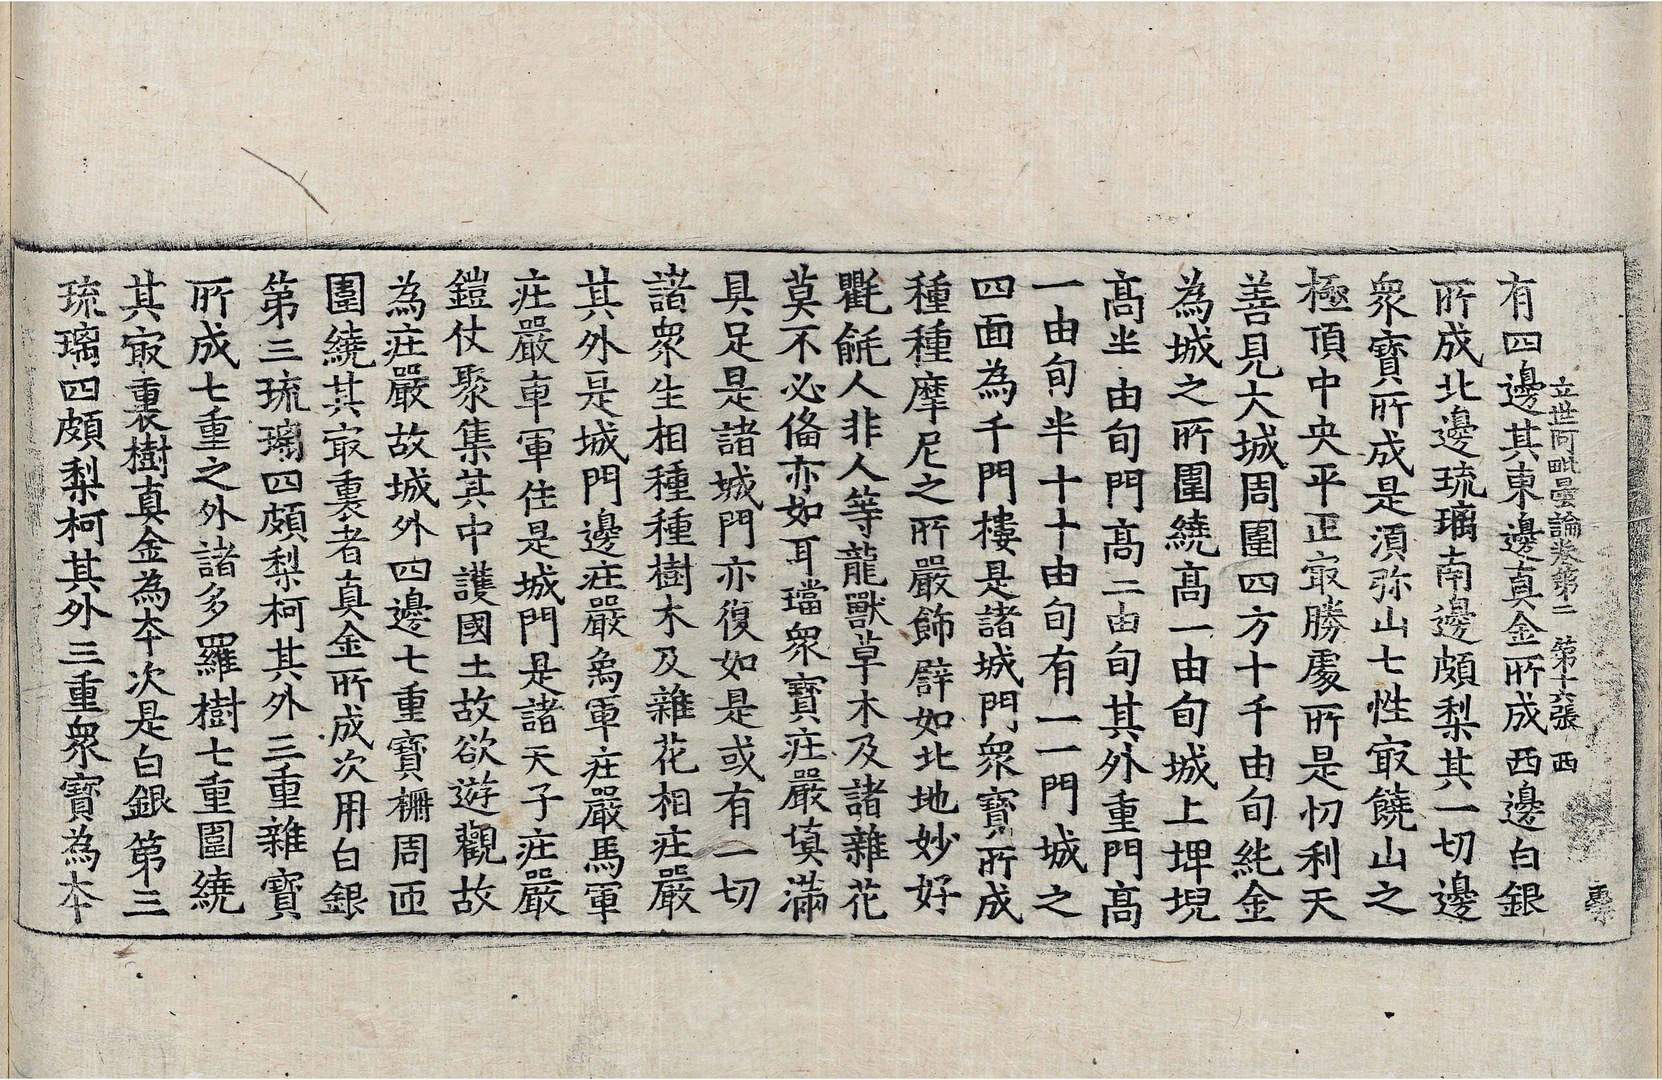 立世阿毗曇論卷第二　第十六張　西
有四邊其東邊真金所成西邊白銀
所成北邊琉璃南邊頗梨其一切邊
衆寶所成是湏弥山七性冣饒山之
極頂中央平正冣勝處所是忉利天
善見大城周圍四方十千由旬純金
為城之所圍繞髙一由旬城上埤堄
髙半由旬門髙二由旬其外重門髙
一由旬半十十由旬有一一門城之
四面為千門樓是諸城門衆寶所成
種種摩尼之所嚴飾譬如北地妙好
氍毹人非人等龍獸草木及諸雜花
莫不必俻亦如耳璫衆寶荘嚴填滿
具足是諸城門亦復如是或有一切
諸衆生相種種樹木及雜花相荘嚴
其外是城門邊荘嚴象軍荘嚴馬軍
荘嚴車軍住是城門是諸天子荘嚴
鎧仗聚集其中護國土故欲遊觀故
為荘嚴故城外四邊七重寶柵周匝
圍繞其冣裏者真金所成次用白銀
第三琉璃四頗梨柯其外三重雜寶
所成七重之外諸多羅樹七重圍繞
其冣裏樹真金為本次是白銀第三
琉璃四頗梨柯其外三重衆寶為本